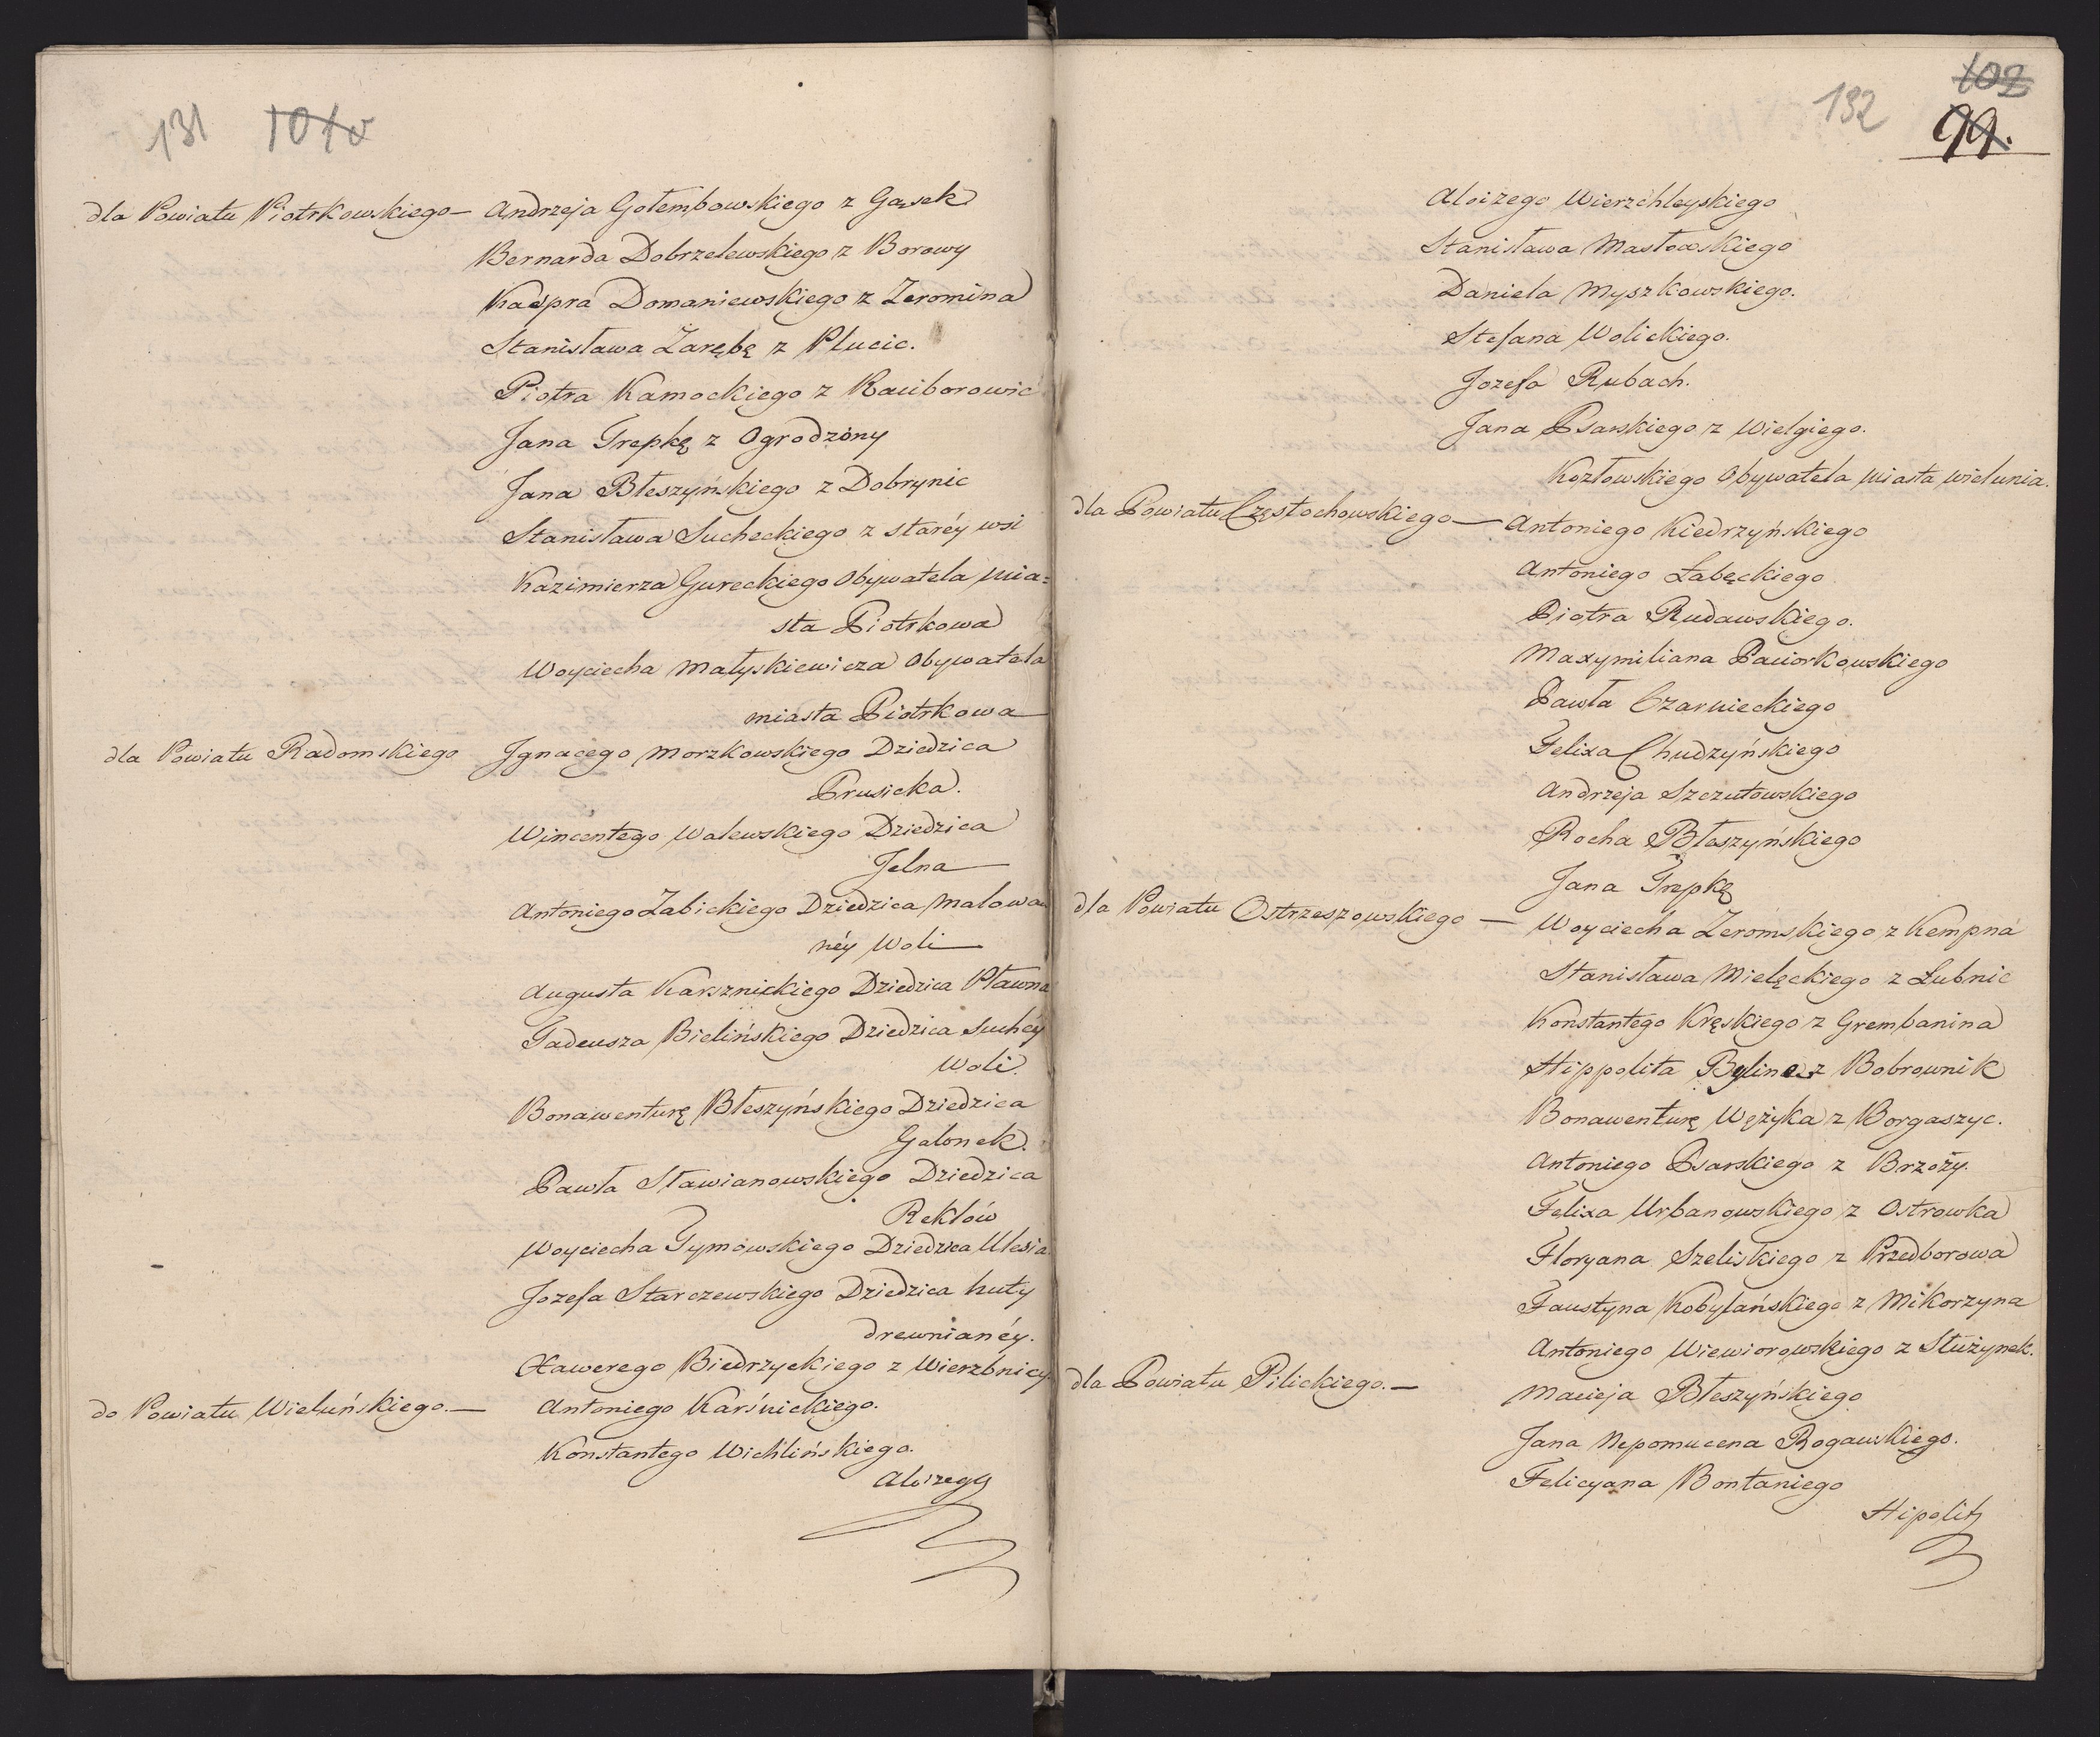 131 101v
dla Powiatu Piotrkowskiego — Andrzeja Gołembowskiego z Gąsek
Bernarda Dobrzelewskiego z Borowy
Kacpra Domaniewskiego z Zeromina
Stanisława Zarębę z Plucic.
Piotra Kamockiego z Raciborowic
Jana Trepkę z Ogrodzony
Jana Błeszyńskiego z Dobrynic
Stanisława Sucheckiego z staréy wsi
Kazimierza Gureckiego Obywatela mia=
sta Piotrkowa
Woyciecha Małyskiewicza Obywatela
miasta Piotrkowa —
dla Powiatu Radomskiego Ignacego Morzkowskiego Dziedzica
Prusicka.
Wincentego Walewskiego Dziedzica
Jelna —
Antoniego Zabickiego Dziedzica Malowa=
néy Woli —
Augusta Karsznickiego Dziedzica Pławna
Tadeusza Bielińskiego Dziedzica Suchéy
Woli.
Bonawenturę Błeszyńskiego Dziedzica
Galonek.
Pawła Stawianowskiego Dziedzica
Reklów
Woyciecha Tymowskiego Dziedzica Ulesia
Jozefa Starczewskiego Dziedzica huty
drewnianéy.
Xawerego Biedrzyckiego z Wierzbnicy.
do Powiatu Wieluńskiego. — Antoniego Karśnickiego.
Konstantego Wichlińskiego.
Aloizego
102
132 99.
Aloizego Wierzchleyskiego
Stanisława Masłowskiego
Daniela Myszkowskiego.
Stefana Wolickiego.
Jozefa Rubach.
Jana Psarskiego z Wielgiego.
Kozłowskiego Obywatela miasta wielunia.
dla Powiatu Częstochowskiego — Antoniego Kiedrzyńskiego
Antoniego Łabęckiego
Piotra Rudawskiego.
Maxymiliana Paciorkowskiego
Pawła Czarnieckiego
Felixa Chudzyńskiego
Andrzeja Szczutowskiego
Rocha Błeszyńskiego
Jana Trepkę
dla Powiatu Ostrzeszowskiego — Woyciecha Zeromskiego z Kempna
Stanisława Mielęckiego z Łubnic
Konstantego Kręskiego z Grembanina
Hippolita Byline z Bobrownik
Bonawenturę Wężyka z Borgaszyc.
Antoniego Psarskiego z Brzozy.
Felixa Urbanowskiego z Ostrowka
Floryana Szeliskiego z Przedborowa
Faustyna Kobylańskiego z Mikorzyna
Antoniego Wiewiorowskiego z Stużynek.
dla Powiatu Pilickiego. — Macieja Błeszyńskiego
Jana Nepomucena Rogawskiego.
Felicyana Bontaniego
Hipolit